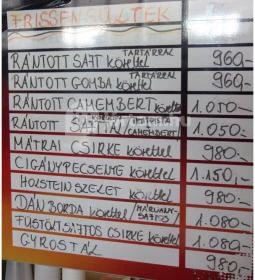 FRISSENSÜLTEK
RÁNTOTT SAJT körettel TARTÁRRAL 960,-
RÁNTOTT GOMBA körettel TARTÁRRAL 960,-
RÁNTOTT CAMEMBERT körettel 1.050-
RÁNTOTT SAJTTÁL /CAMEMBERT 1.050-
MÁTRAI CSIRKE körettel 980.-
CIGÁNYPECSENYE körettel 1.150,-
HOLSTEIN SZELET körettel 980,-
DÁN BORDA körettel /MÁRVÁNY-SAJTOS 1.080-
FÜSTÖLTSAJTOS CSIRKE körettel 1.080-
GYROSTÁL 980-